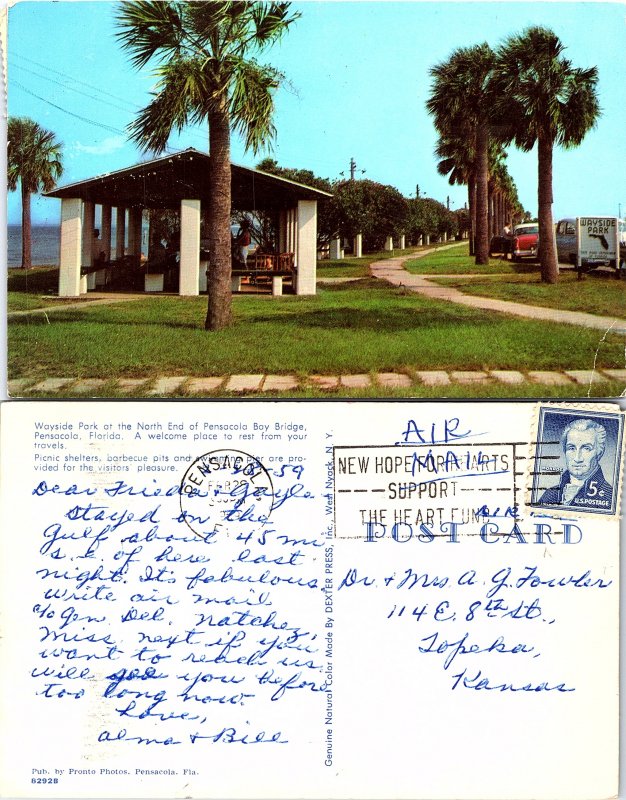 WAYSIDE
PARK
Wayside Park at the North End of Pensacola Bay Bridge,
Pensacola, Florida. A welcome place to rest from your
travels.
Picnic shelters, barbecue pits and swimming pier are pro-
vided for the visitors' pleasure.
59
Dear Frieda & Gayle
Stayed on the
Gulf about 45 mi
s.e. of here last
night. It's fabulous.
Write air mail
c/o Gen. Del. Natchez,
Miss. next if you
want to reach us.
will see you before
too long now.
Love,
Alma & Bill
Pub. by Pronto Photos, Pensacola, Fla.
82928
Genuine Natural Color Made By DEXTER PRESS, Inc., West Nyack, N Y
PENSACOLA
FEB 28
AIR
MAIL
NEW HOPE FOR HEARTS
SUPPORT
THE HEART FUND
AIR
5¢
U.S. POSTAGE
POST CARD
Dr. & Mrs. A. G. Fowler
114 E. 8th St.,
Topeka,
Kansas